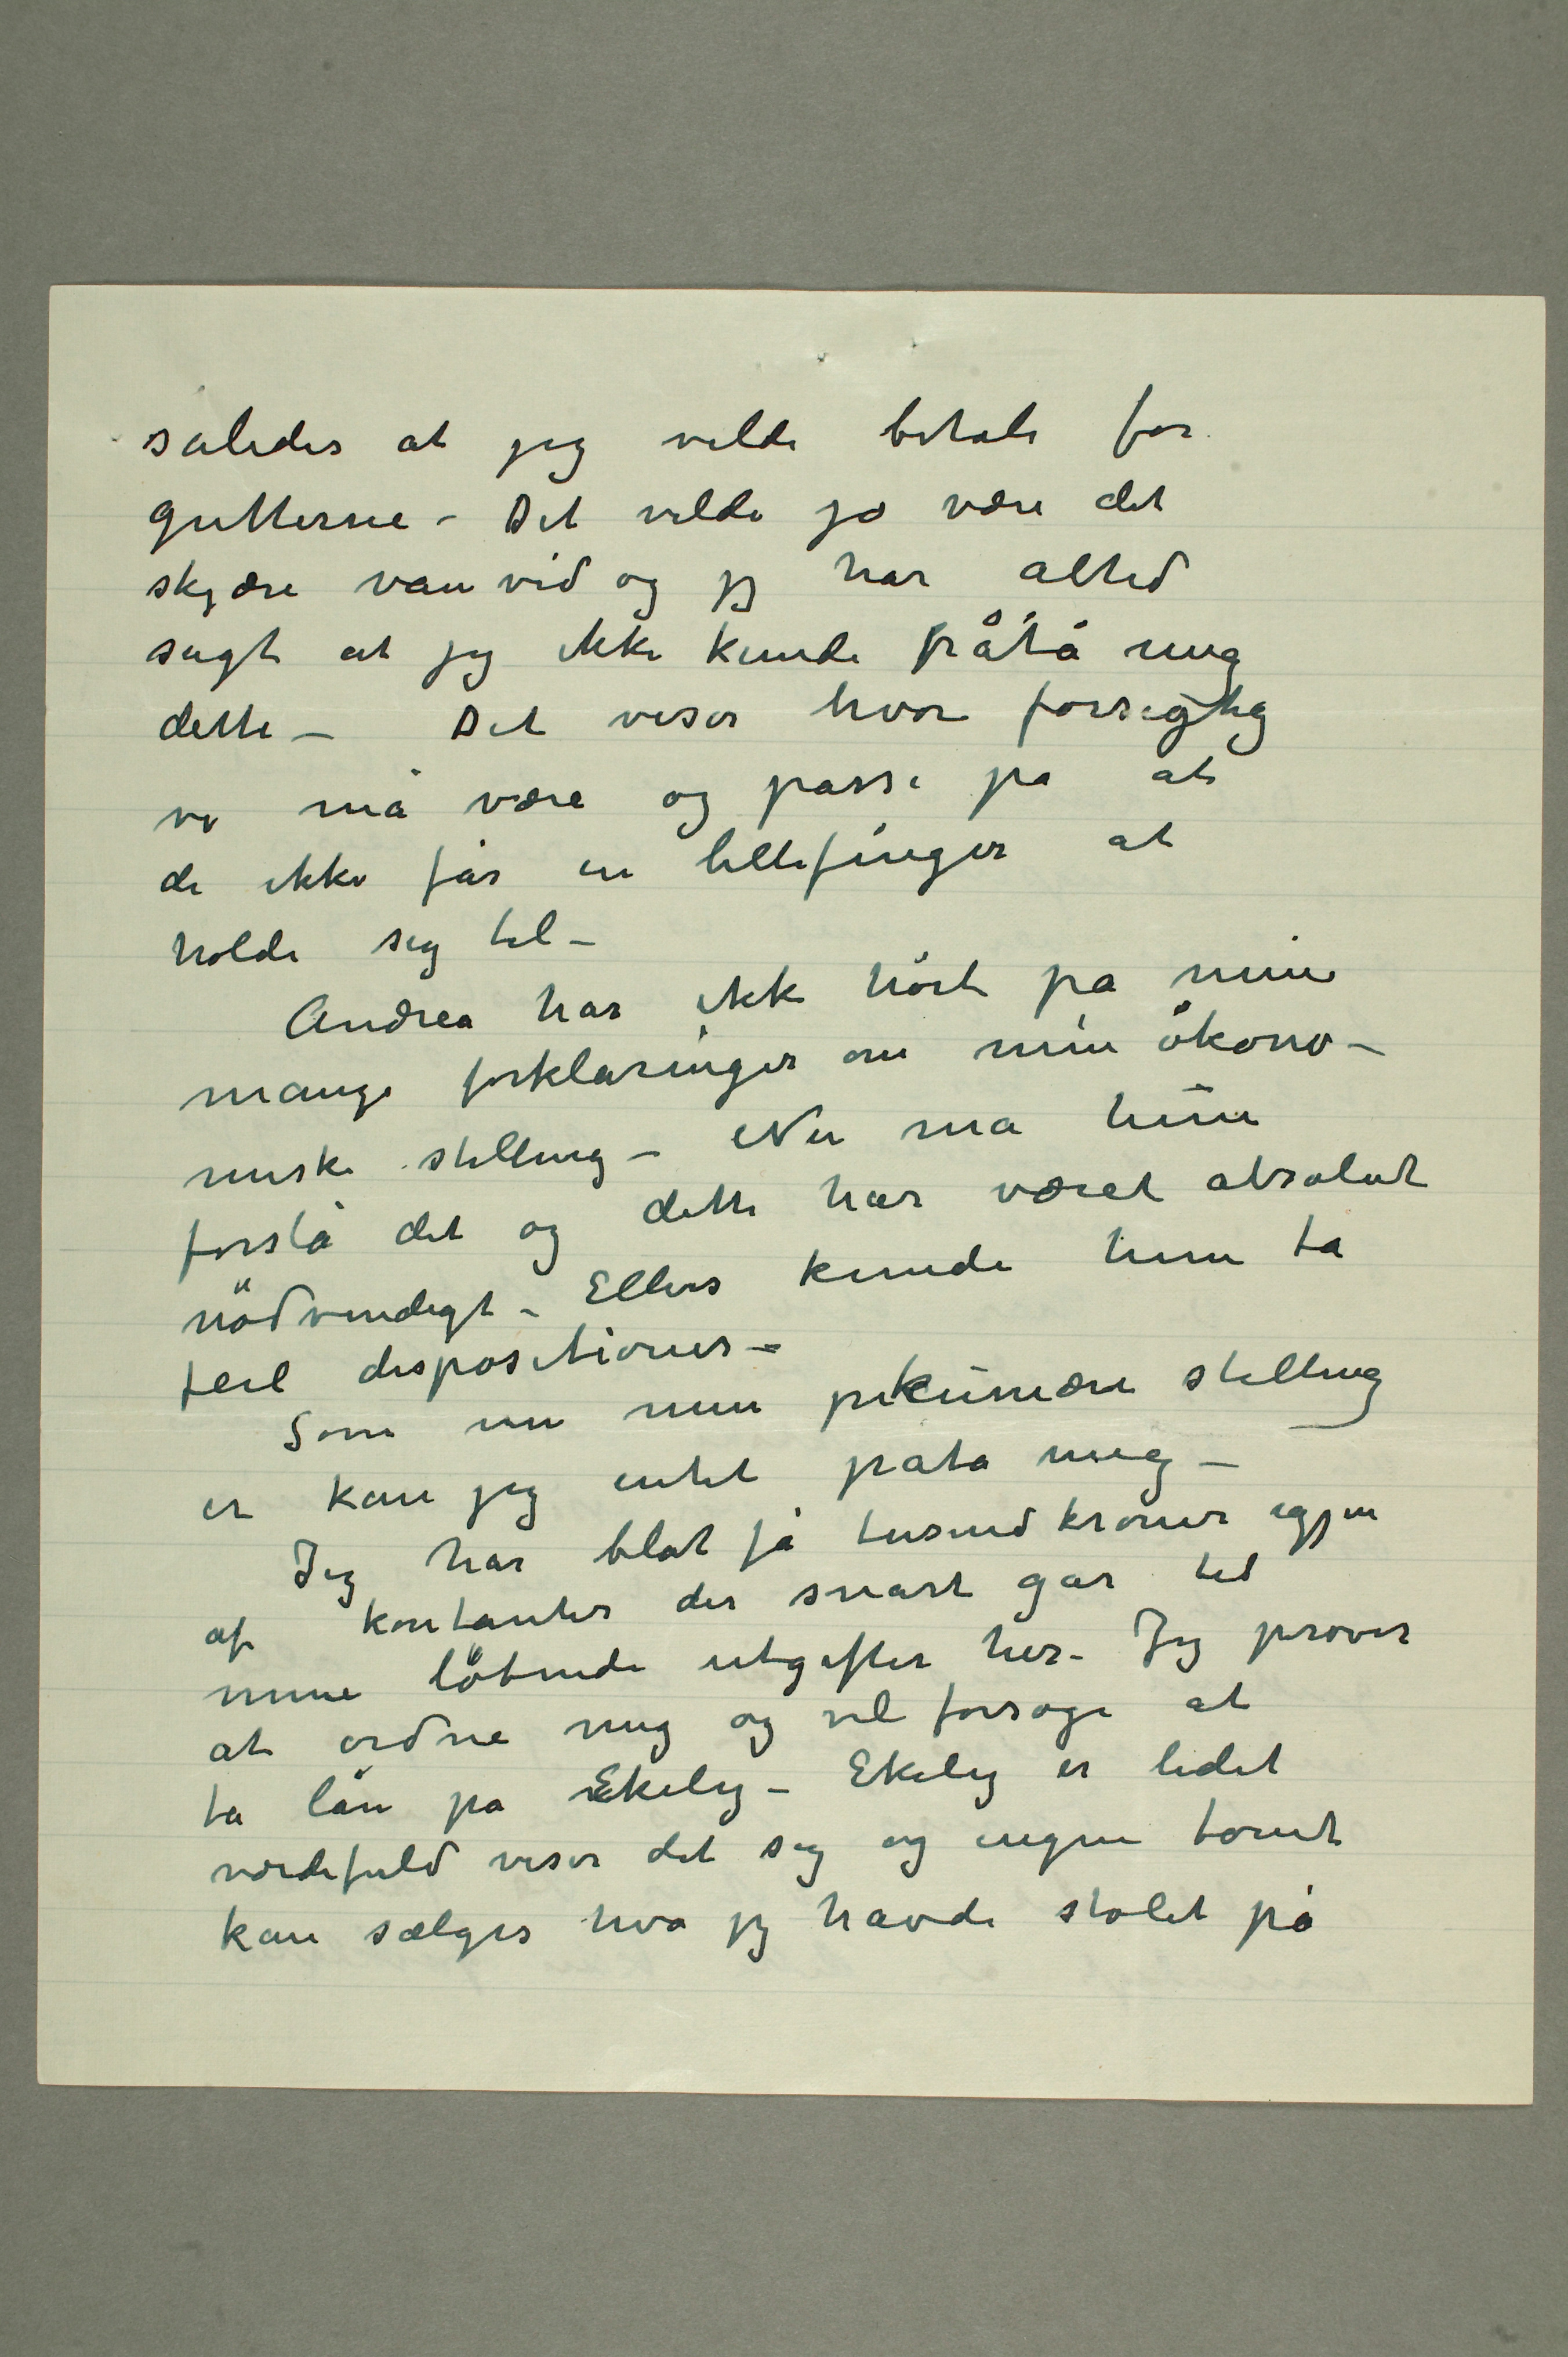 således at jeg vilde betale for
gutterne – Det vilde jo være det
skjære vanvid og jg har altid
sagt at jeg ikke kunde påtå mig
dette – Det viser hvor forsigtig
vi må være og passe på at
de ikke får en lillefinger at
holde sig til –
Andrea har ikke hört på mine
mange forklaringer om min ökono–
miske stilling – Nu må hun
forstå det og dette har været absolut
nödvendigt – Ellers kunde hun ta
feil dispositioner –
Som nu min pekuniære stilling
er kan jeg intet påta mig –
Jeg har blot få tusind kroner igjen
af kontanter der snart går til
mine löbende utgifter her – Jeg prøver
at ordne mig og vil forsøge at
ta lån på Ekely – Ekely er lidet
værdifuld viser det sig og ingen tomt
kan sælges hva jg havde stolet på